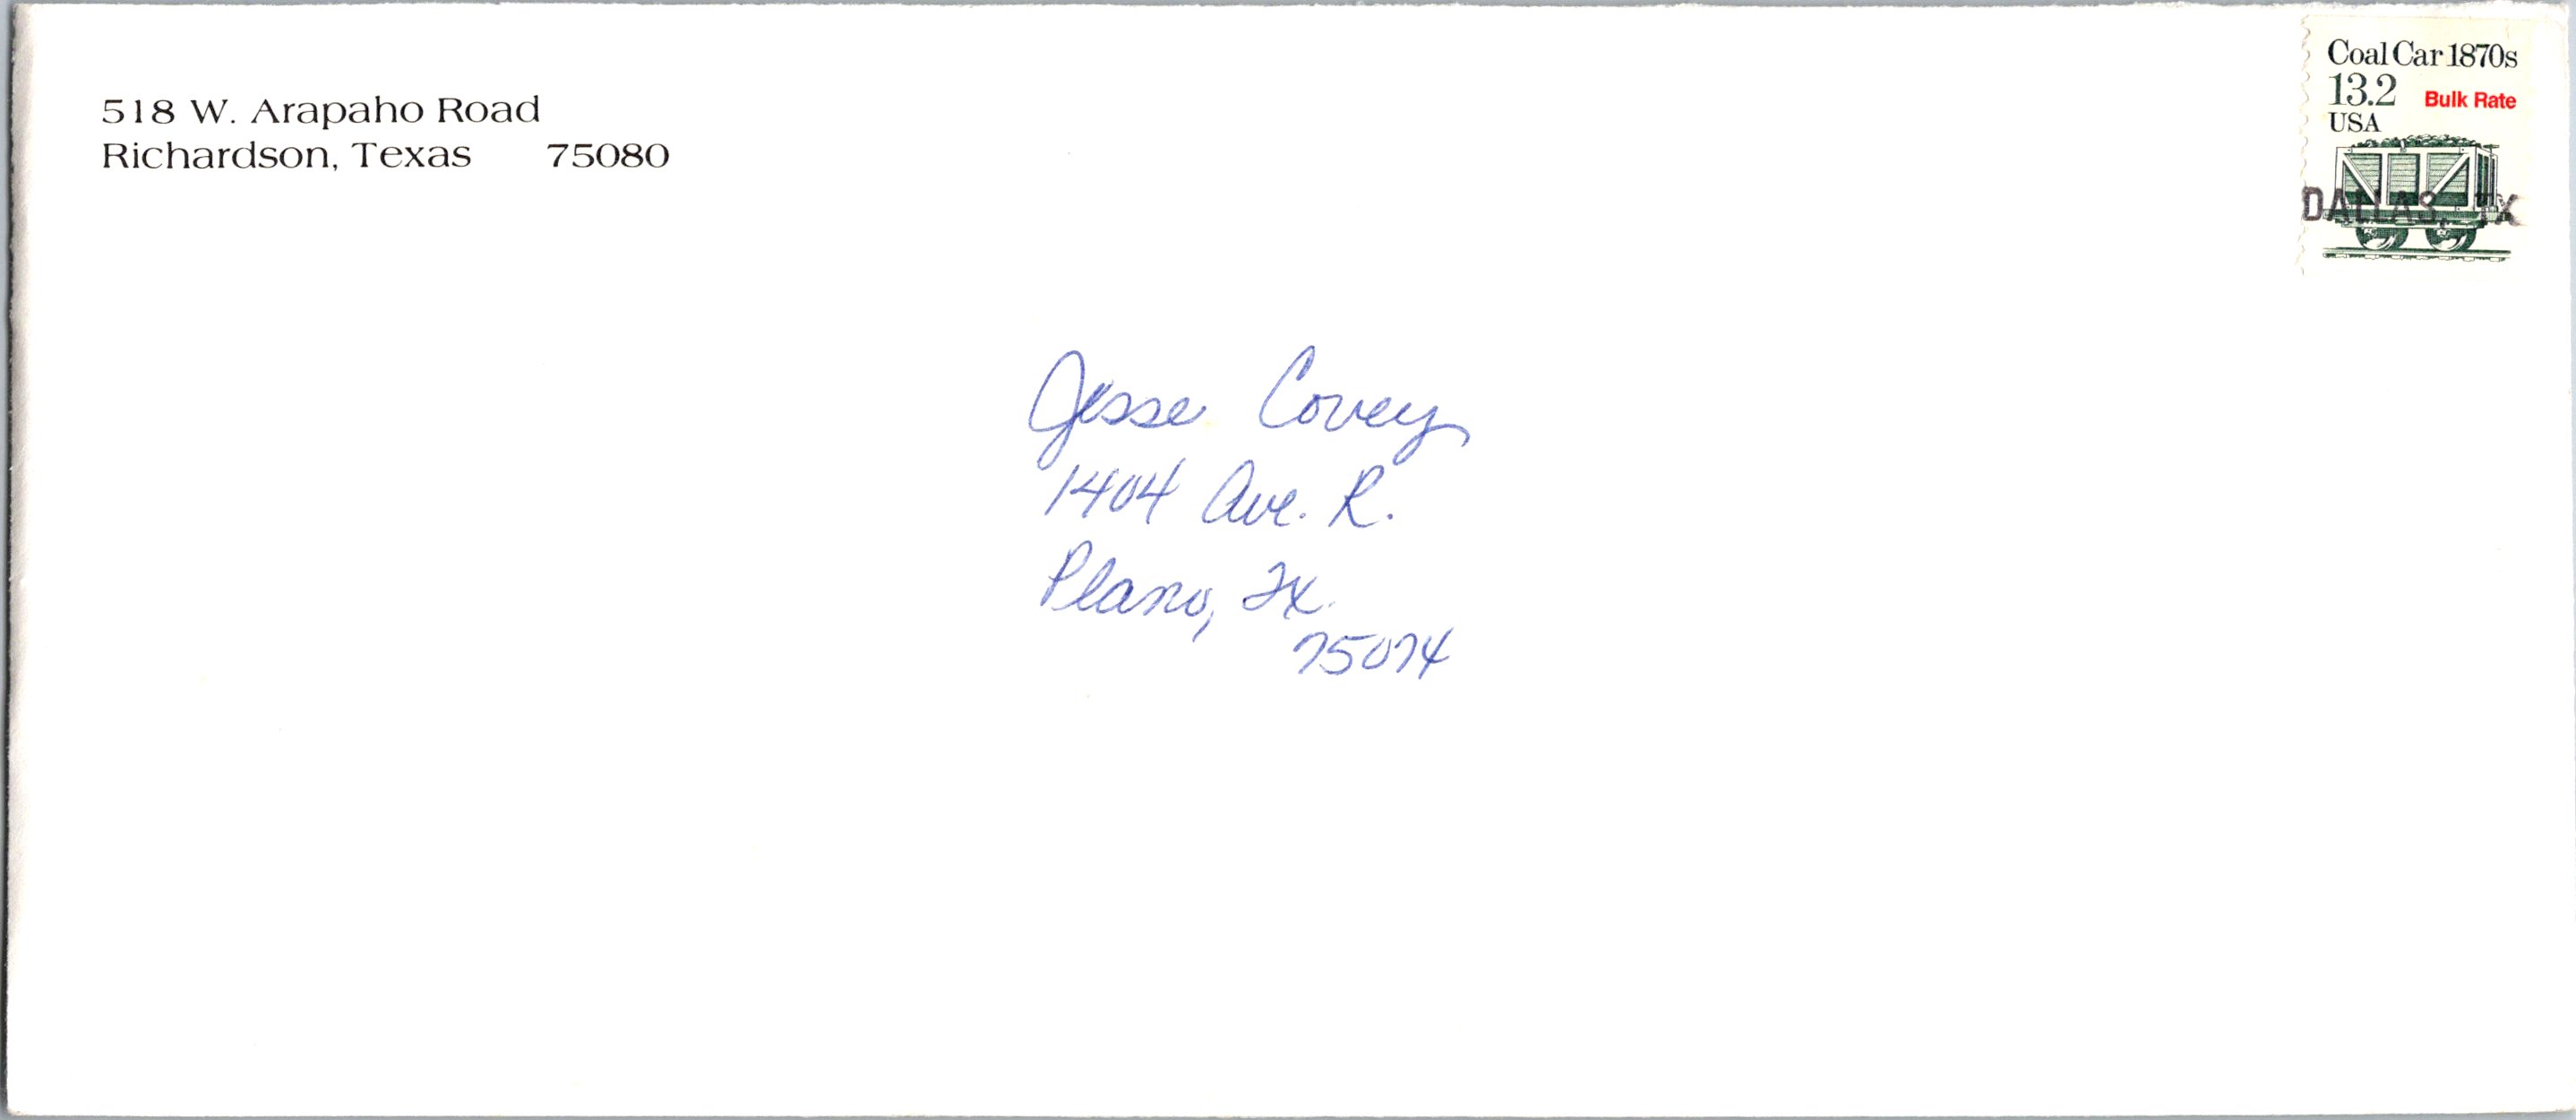 518 W. Arapaho Road
Richardson, Texas 75080
Coal Car 1870s
13.2 Bulk Rate
USA
DALLAS, TX
Jesse Covey
1404 Ave. R.
Plano, Tx.
75074